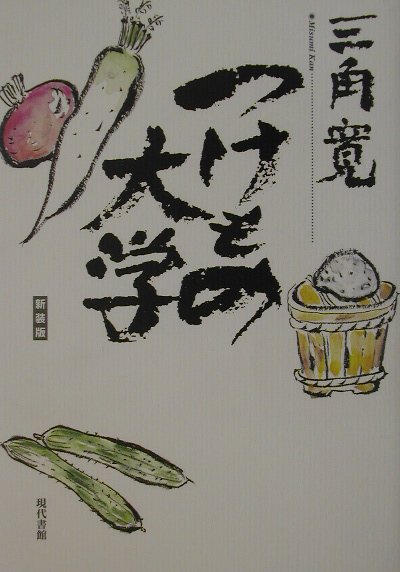 三角寛
Misumi Kan
つけもの
大学
新装版
現代書館